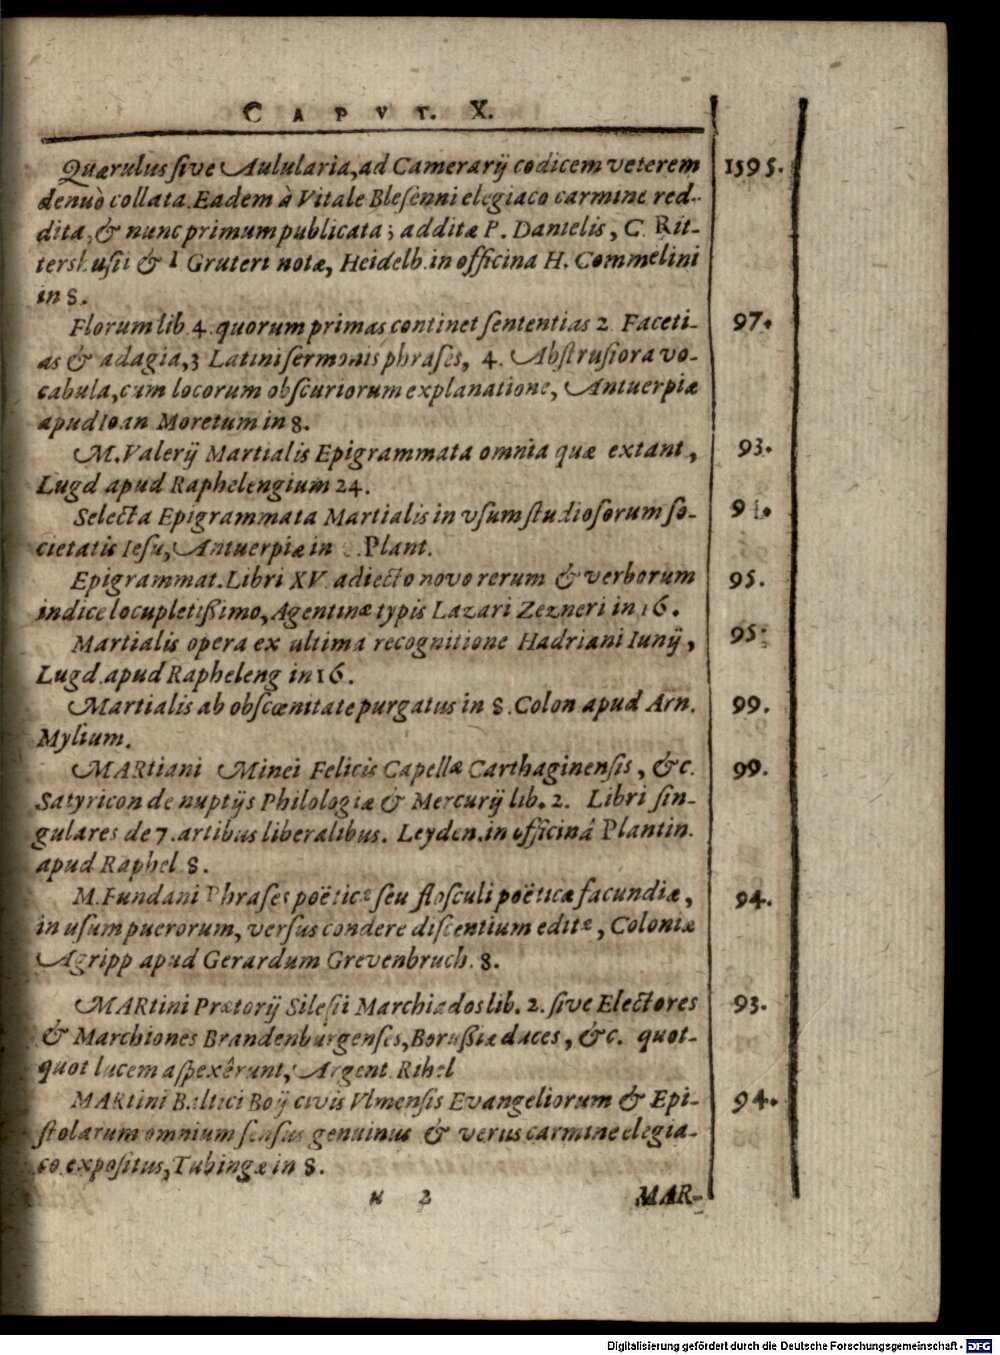 CAPVT. X.
Quærulus ſive Aulularia, ad Camerarij codicem veterem 1595.
denuò collata. Eadem à Vitale Bleſenni elegiaco carmine red-
dita, & nunc primum publicata; additæ P. Danielis, C. Rit-
tershuſii & I Gruteri notæ, Heidelb. in officina H. Commelini
in 8.
Florum lib. 4. quorum primas continet ſententias 2. Faceti- 97.
as & adagia, 3 Latini ſermonis phraſes, 4. Abſtruſiora vo-
cabula, cum locorum obſcuriorum explanatione, Antuerpiæ
apud Ioan Moretum in 8.
M. Valerij Martialis Epigrammata omnia quæ extant, 93.
Lugd apud Raphelengium 24.
Selecta Epigrammata Martialis in vſum ſtudioſorum ſo-
cietatis Ieſu, Antuerpiæ in Plant.
Epigrammat. Libri XV. adiecto novo rerum & verborum 95.
indice locupletißimo, Agentinæ typis Lazari Zezneri in 16.
Martialis opera ex ultima recognitione Hadriani Iunij, 95.
Lugd. apud Rapheleng in 16.
Martialis ab obſcœnitate purgatus in 8. Colon apud Arn. 99.
Mylium.
MARtiani Minei Felicis Capellæ Carthaginenſis, &c. 99.
Satyricon de nuptijs Philologiæ & Mercurij lib. 2. Libri ſin-
gulares de 7. artibus liberalibus. Leyden. in officinâ Plantin.
apud Raphel 8.
M. Fundani Phraſes poëticæ ſeu floſculi poëticæ facundiæ, 94.
in uſum puerorum, verſus condere diſcentium editæ, Coloniæ
Agripp apud Gerardum Grevenbruch. 8.
MARtini Prætorij Sileſii Marchiados lib. 2. ſive Electores 93.
& Marchiones Brandenburgenſes, Borußiæ duces, &c. quot-
quot lucem aſpexêrunt, Argent. Rihel
MARtini Baltici Boij civis Vlmenſis Evangeliorum & Epi- 94.
ſtolarum omnium ſenſus genuinus & verus carmine elegia-
co expoſitus, Tubingæ in 8.
N 2 MAR-
Digitalisierung gefördert durch die Deutsche Forschungsgemeinschaft - DFG